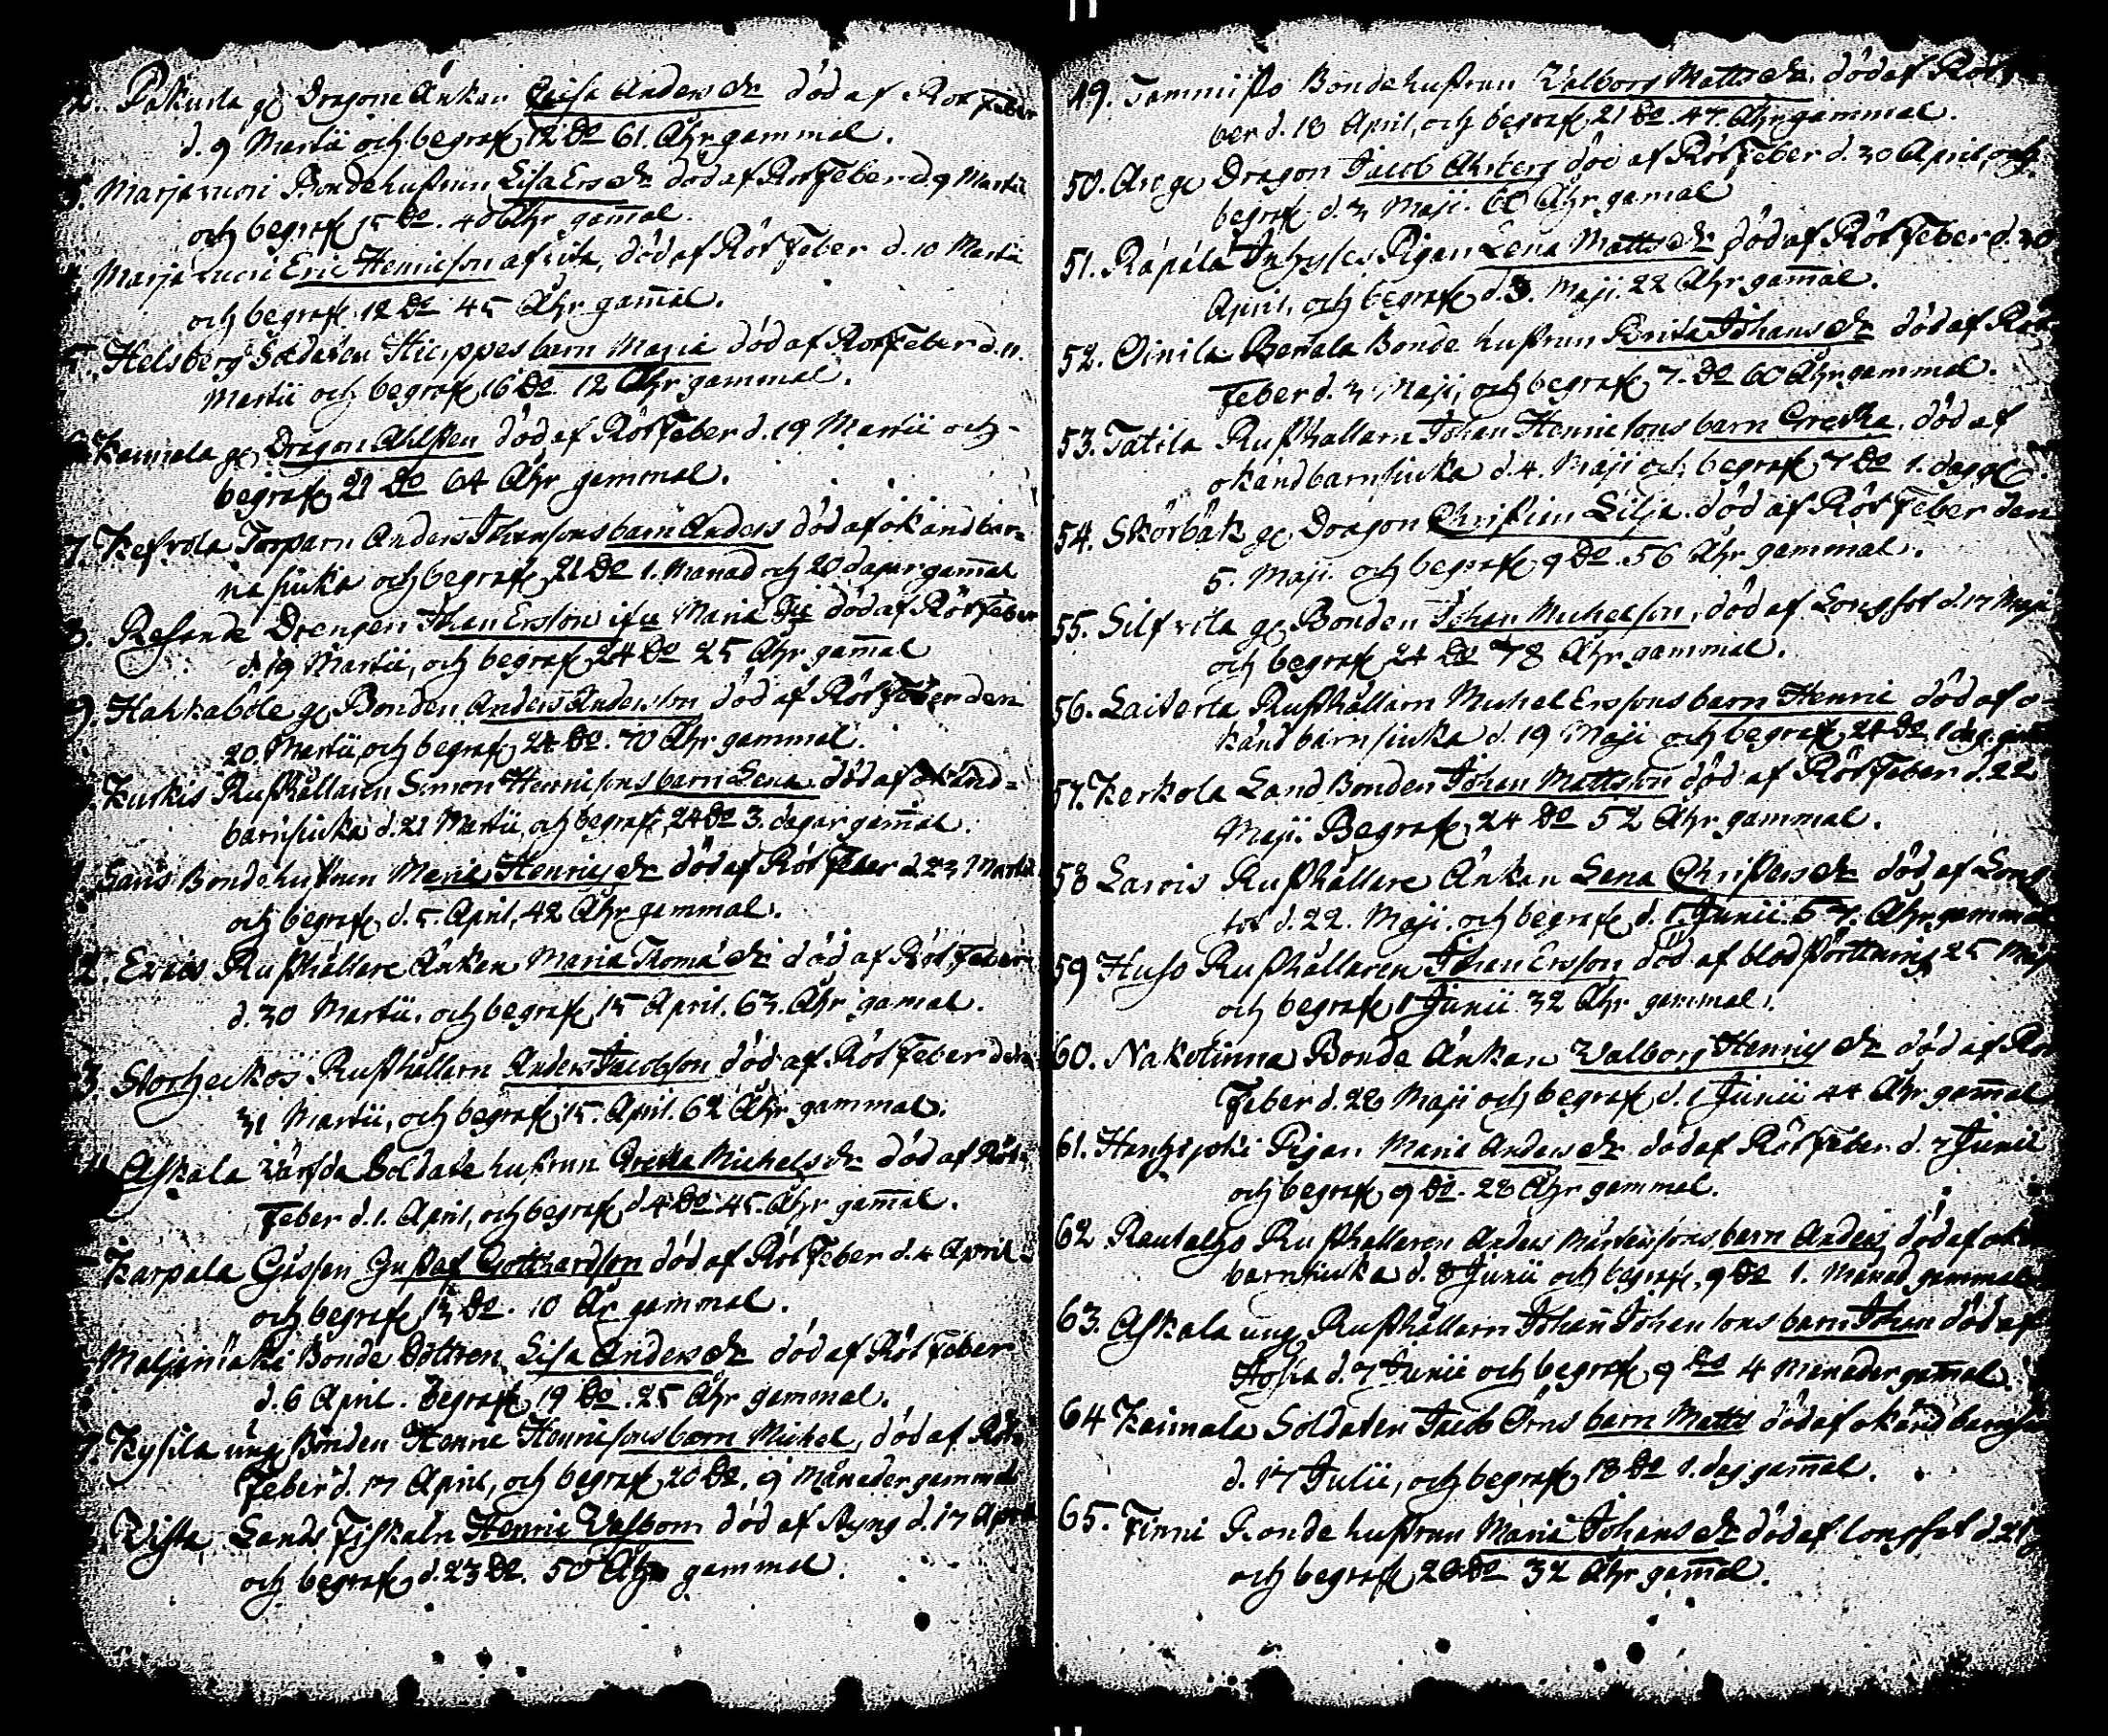 Pakurla gl Dragone Änkan Caisa Andersdr död af Röt Feber
d. 9 Martii och begrafn 12 Do 61. Åhr gammal.
Marjavuori Bondehustrun Lisa Ersdr död af Röt Feber d. 9 Martii
och begrafn 15 Do. 40 Åhr gam̄al.
Marjavuori Eric Henricson afvita, död af Röt Feber d. 10 Martii
och begrafn 12 Do 45 Åhr gam̄al.
Helsberg Soldaten barn Maria död af Röt Feber d. 11.
Martii och begrafn 16 Do. 12 Åhr gammal.
Kaimala gl Dragon Ahlsten död af Röt Feber d. 19 Martii och
begrafn 21 Do 64 Åhr gammal.
7. Torparn Anders Johansons barn Anders död af okänd bar=
na siuka och begrafn 21 Do 1. Månad och 20 dagar gam̄al
8. Resande Drengen Johan Ersson ifrn Maria död af Röt Feber
d. 19 Martii, och begrafn 24 Do 25 Åhr gam̄al
9. Hahkaböle gl Bonden Anders Andersson död af Röt Feber den
20. Martii, och begrafn 24 Do. 70 Åhr gammal.
Kurkis Rusthållaren Simon Henricsons barn Lena död af okänd=
barnsiuka d. 21 Martii, och begrafn 24 Do 3. dagar gam̄al.
Saris Bondehustrun Maria Henricsdr död af Röt Feber d 23 Martii
och begrafn d. 5. April, 42 Åhr gammal.
2. Erics Rusthållare Änkan Maria Thomædr död af Röt Feber
d. 30 Martii, och begrafn 15 April. 63. Åhr gamal.
3. Storheikös Rusthållarn Anders Jacobson död af Röt Feber den
31 Martii, och begrafn 15. April. 62 Åhr gammal.
Askala värfda Soldate hustrun Gretha Michelsdr död af Röt=
Feber d. 1. April, och begrafn d 4 Do 45. Åhr gam̄al.
Karpala Gåssen Gustaf Gotthardson död af Röt Feber d. 4 April
och begrafn 13 Do. 10 Åhr gammal.
Maljamäki Bonde Dottren Lisa Andersdr död af Röt Feber
d. 6 April. Begrafn 19 Do. 25 Åhr gammal.
7. Kysila ung Bonden Henric Henricsons barn Michel, död af Röt=
Feber d. 17 April, och begrafn 20 Do. 9 Månader gammal
Vista Lands Fiskaln Henric Valbom död af Styng d. 17 April
och begrafn d. 23 Do. 50 Åhr gammal.
49. Tammisto Bondehustrun Valborg Mattsdr död af Röt
ber d. 18 April, och begrafn 21 Do. 47. Åhr gammal.
50. Aro gl Dragon Jacob Ahrberg död af Röt Feber d. 30 April, och
begrafn d. 3 Maji. 60 Åhr gamal
51. Räpälä Inhyses Pigan Lena Mattsdr död af Röt Feber d. 30
April, och begrafn d. 3. Maji. 22 Åhr gam̄al.
52. Oinila Bertala Bonde hustrun Brita Johansdr död af Röt
Feber d. 3 Maji, och begrafn 7. Do 60 Åhr gammal.
53. Tatila Rusthållarn Johan Henricsons barn Gretha, död af
okänd barnsiuka d. 4. Maji och begrafn 7 Do 1. dag gl
54. Skörbäk gl Dragon Christian Lilja död af Röt Feber den
5. Maji. och begrafn 9 Do. 56 Åhr gammal.
55. Silfvila gl Bonden Johan Michelson, död af Longsot d. 17 Maji
och begrafn 24 Do 78 Åhr gammal.
56. Rusthållarn Michel Erssons barn Henric död af o-
känd barnsiuka d. 19 Maji och begrafn 24 Do 1 dag gam
57. Kerkola Land Bonden Johan Mattsson död af Röt Feber d. 22
Maji. Begrafn 24 Do 52 Åhr gammal.
58 Larois Rusthållare Änkan Lena Christersdr död af Long
sot d. 22. Maji. och begrafn d. 1. Junii 57. Åhr gammal
59 Huso Rusthållaren Johan Ersson död af blodstörtning 25 Maji
och begrafn 1 Junii 32 Åhr gammal.
60. Nakolinna Bonde Änkan Valborg Henricsdr död af Röt
Feber d. 28 Maji och begrafn d. 1 Junii 44 Åhr gam̄al
61. Pigan Maria Andersdr död af Röt Feber d. 7 Junii
och begrafn 9 Do. 28 Åhr gammal.
62 Rusthållaren Anders Mårtensons barn Anders död af
barnsiuka d. 8 Junii och begrafn. 9 Do 1. Månad gammal
63. Askala ung Rusthållarn Johan Johansons barn Johan död af
Hosta d. 7 Junii och begrafn 9 Do 4 Månader gam̄al.
64 Kaimala Soldaten Jacob Örns barn Matts död af okänd barnsiu
d. 17 Julii, och begrafn 18 Do 1. dag gam̄al.
65. Finni Bonde hustrun Maria Johansdr död af longsot d. 21
och begrafn 26 Do 32 Åhr gam̄al.